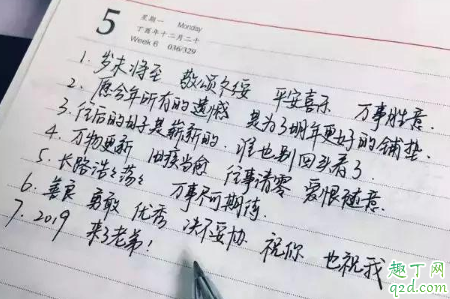 5
星期一 Monday
丁酉年十二月二十
Week 6 036/329
1. 岁末将至 敬颂冬绥 平安喜乐 万事胜意.
2. 愿今年所有的遗憾 是为了明年更好的铺垫.
3. 往后的日子是崭新的, 谁也别回头看了.
4. 万物更新 旧疾当愈 往事清零 爱恨随意.
5. 长路浩浩荡荡 万事尽可期待.
6. 善良 勇敢 优秀 决不妥协 祝你 也祝我
7. 2019 来了老弟!
趣丁网
q2d.com